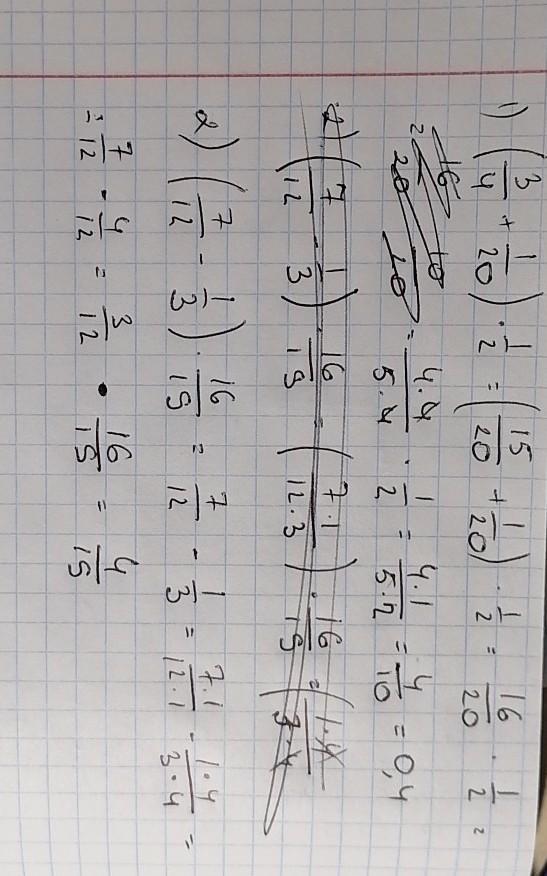 1) (3/4 + 1/20) · 1/2 = (15/20 + 1/20) · 1/2 = 16/20 · 1/2 =
= 4·4/5·4 · 1/2 = 4·1/5·2 = 4/10 = 0,4
2) (7/12 - 1/3) · 16/15 = (7·1/12·3) · 16/15 = (1·4/3·4
2) (7/12 - 1/3) · 16/15 = 7/12 - 1/3 = 7·1/12·1 - 1·4/3·4 =
= 7/12 - 4/12 = 3/12 · 16/15 = 4/15